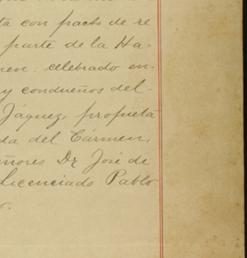 ta con pacto de re
parte de la Ha-
men, celebrado en-
y condueños del
Jáquez, propieta
da del Cármen,
eñores Dr José de
Licenciado Pablo
o.